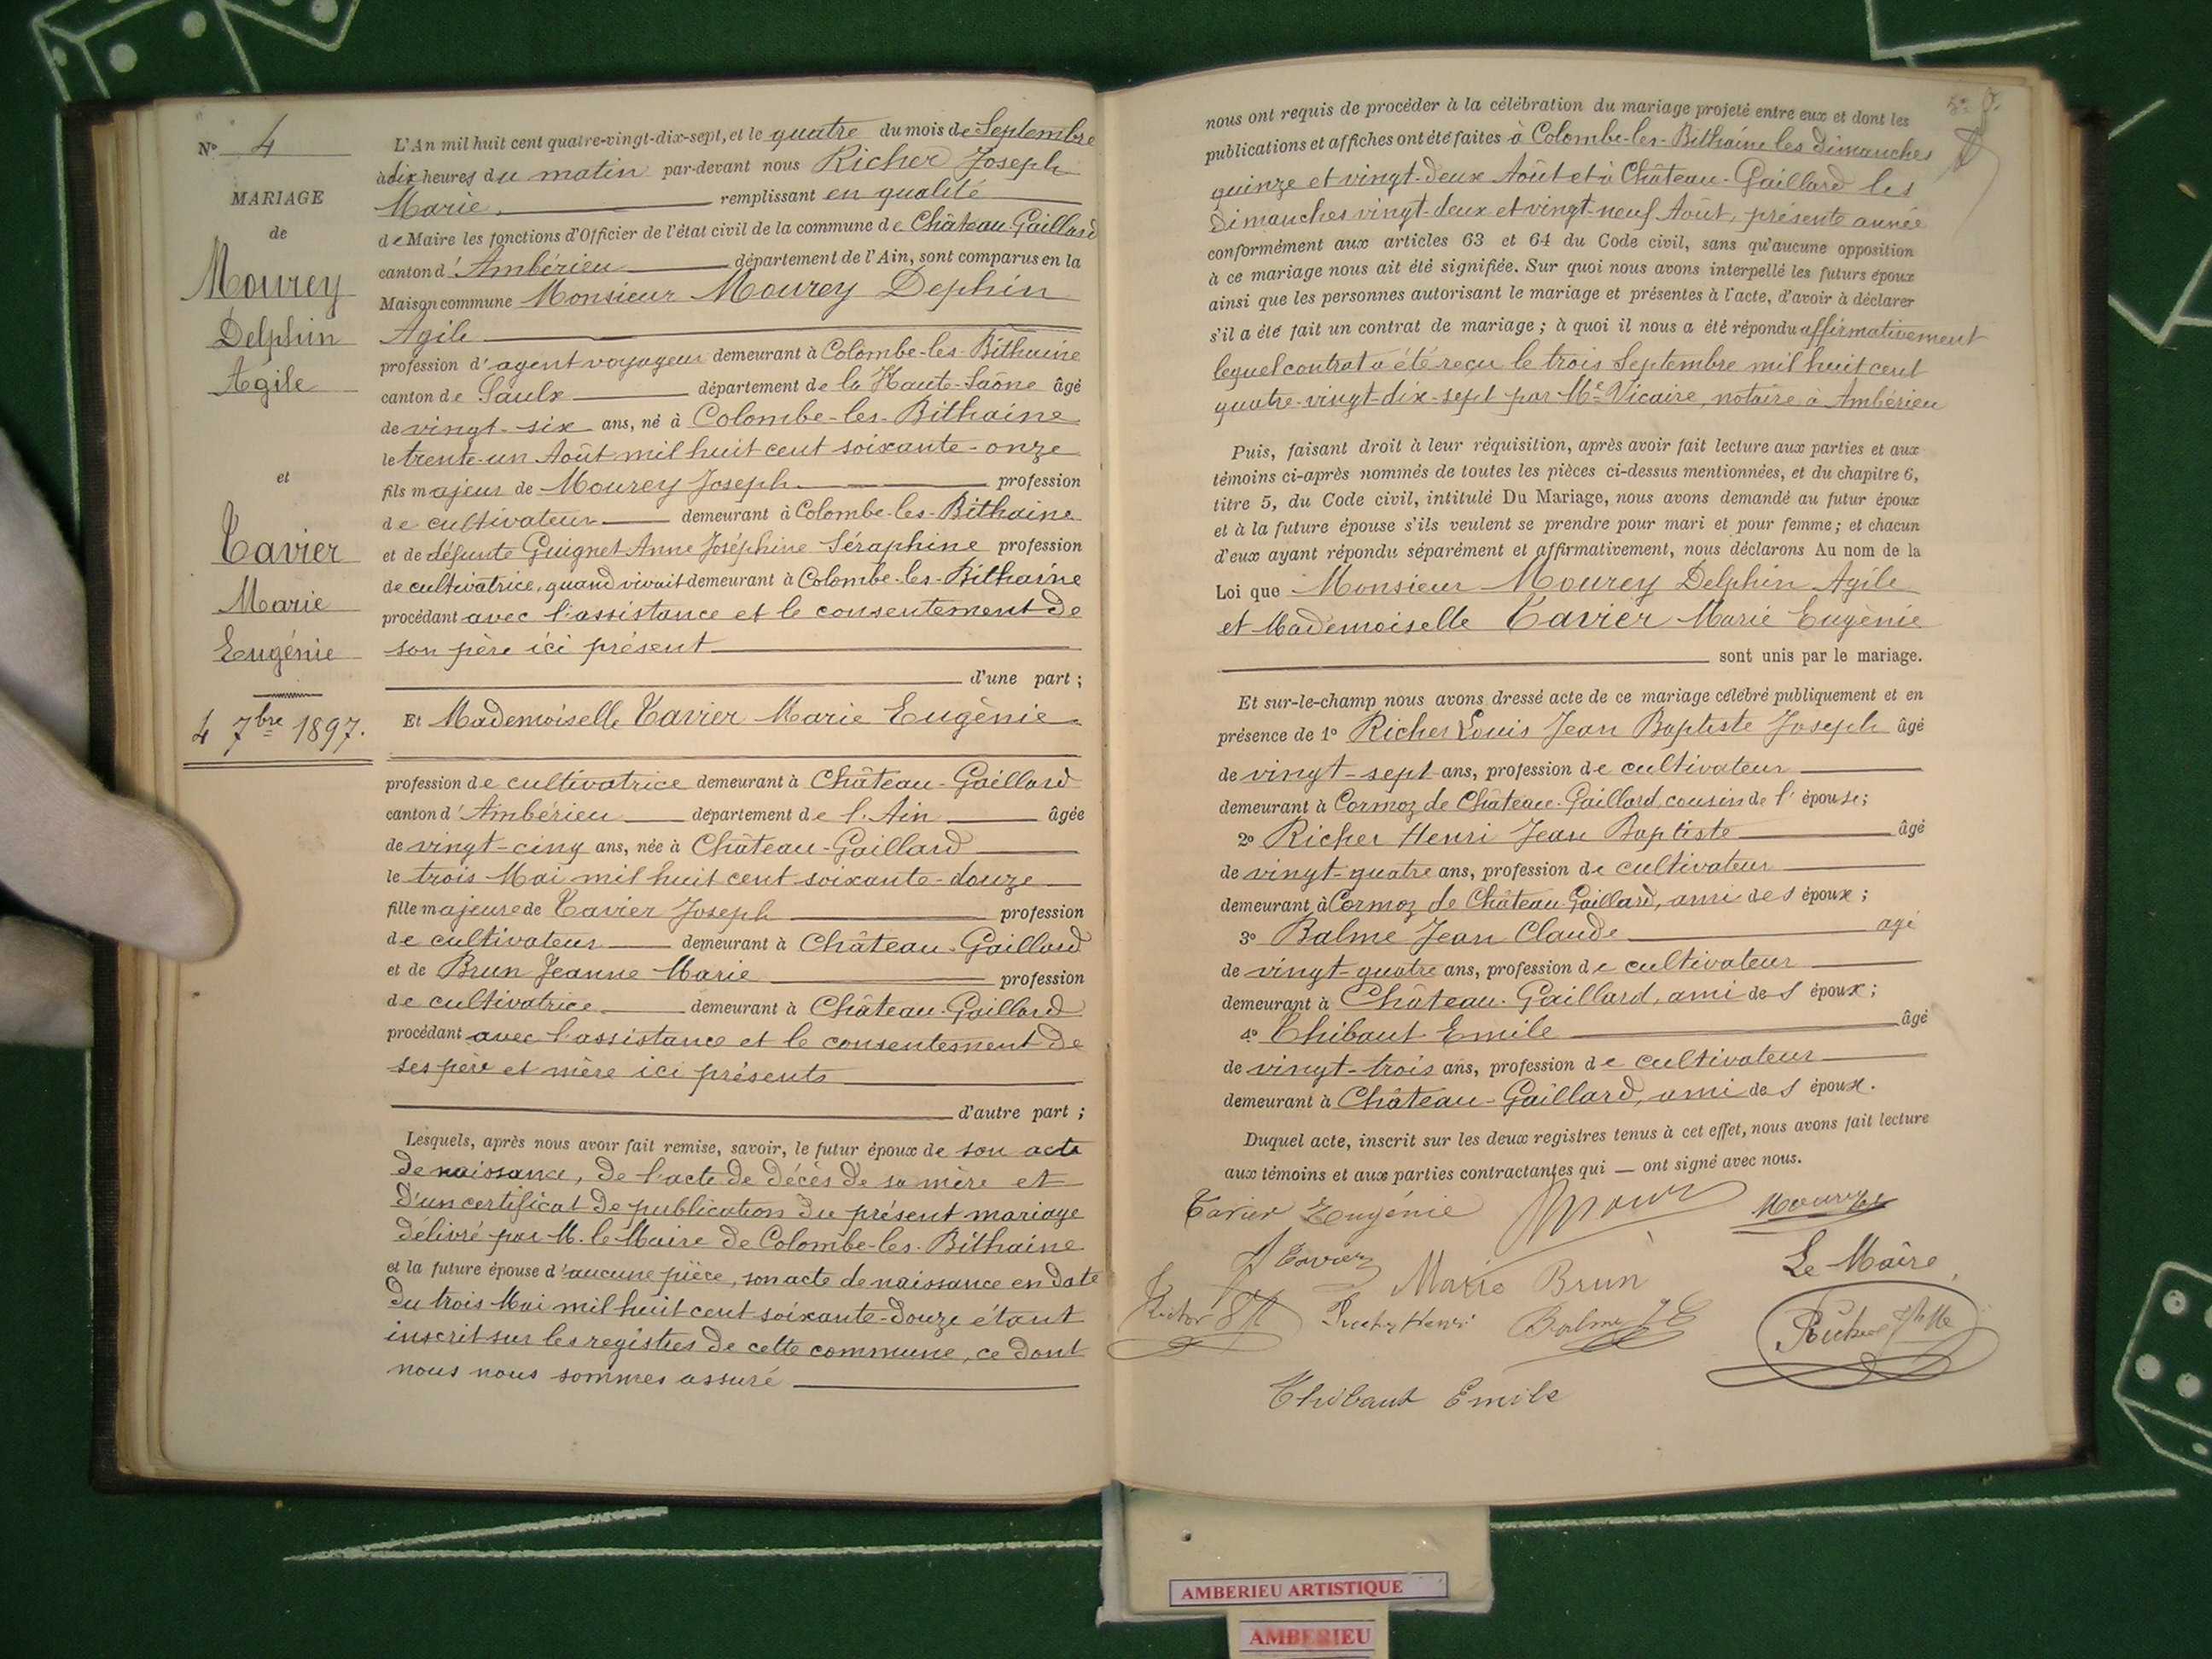 N° 4
MARIAGE
de
Mourey
Delphin
Agile
et
Tavier
Marie
Eugénie
4 7bre 1897.
L'An mil huit cent quatre-vingt-dix-sept, et le quatre du mois de Septembre
à dix heures du matin par-devant nous Richer Joseph
Marie remplissant en qualité
de Maire les fonctions d'Officier de l'état civil de la commune de Château-Gaillard
canton d'Ambérieu département de l'Ain, sont comparus en la
Maison commune Monsieur Mourey Dephin
Agile
profession d'agent voyageur demeurant à Colombe-les-Bithaine
canton de Saulx département de la Haute-Saône âgé
de vingt-six ans, né à Colombe-les-Bithaine
le trente-un Août mil huit cent soixante-onze
fils majeur de Mourey Joseph profession
de cultivateur demeurant à Colombe-les-Bithaine
et de défunte Guignet Anne Joséphine Séraphine profession
de cultivatrice, quand vivait demeurant à Colombe-les-Bithaine
procédant avec l'assistance et le consentement de
son père ici présent
d'une part ;
Et Mademoiselle Tavier Marie Eugènie
profession de cultivatrice demeurant à Château-Gaillard
canton d'Ambérieu département de l'Ain âgée
de vingt-cinq ans, née à Château-Gaillard
le trois Mai mil huit cent soixante-douze
fille majeure de Tavier Joseph profession
de cultivateur demeurant à Château-Gaillard
et de Brun Jeanne Marie profession
de cultivatrice demeurant à Château-Gaillard
procédant avec l'assistance et le consentement de
ses père et mère ici présents
d'autre part ;
Lesquels, après nous avoir fait remise, savoir, le futur époux de son acte
de naissance, de l'acte de décès de sa mère et
d'un certificat de publication du présent mariage
délivré par M. le Maire de Colombe-les-Bithaine
et la future épouse d'aucune pièce, son acte de naissance en date
du trois Mai mil huit cent soixante-douze étant
inscrit sur les registres de cette commune, ce dont
nous nous sommes assuré
nous ont requis de procéder à la célébration du mariage projeté entre eux et dont les
publications et affiches ont été faites à Colombe-les-Bithaine les dimanches
quinze et vingt-deux Août et à Château-Gaillard les
dimanches vingt-deux et vingt-neuf Août, présente année
conformément aux articles 63 et 64 du Code civil, sans qu'aucune opposition
à ce mariage nous ait été signifiée. Sur quoi nous avons interpellé les futurs époux
ainsi que les personnes autorisant le mariage et présentes à l'acte, d'avoir à déclarer
s'il a été fait un contrat de mariage ; à quoi il nous a été répondu affirmativement
lequel contrat a été reçu le trois Septembre mil huit cent
quatre-vingt-dix-sept par Me Vicaire, notaire à Ambérieu
Puis, faisant droit à leur réquisition, après avoir fait lecture aux parties et aux
témoins ci-après nommés de toutes les pièces ci-dessus mentionnées, et du chapitre 6,
titre 5, du Code civil, intitulé Du Mariage, nous avons demandé au futur époux
et à la future épouse s'ils veulent se prendre pour mari et pour femme ; et chacun
d'eux ayant répondu séparément et affirmativement, nous déclarons Au nom de la
Loi que Monsieur Mourey Delphin Agile
et Mademoiselle Tavier Marie Eugènie
sont unis par le mariage.
Et sur-le-champ nous avons dressé acte de ce mariage célébré publiquement et en
présence de 1° Richer Louis Jean Baptiste Joseph âgé
de vingt-sept ans, profession de cultivateur
demeurant à Cormoz de Château-Gaillard, cousin de l'épouse ;
2° Richer Henri Jean Baptiste âgé
de vingt-quatre ans, profession de cultivateur
demeurant à Cormoz de Château-Gaillard, ami des époux ;
3° Balme Jean Claude agé
de vingt-quatre ans, profession de cultivateur
demeurant à Château-Gaillard, ami des époux ;
4° Thibaut Emile âgé
de vingt-trois ans, profession de cultivateur
demeurant à Château-Gaillard, ami des époux.
Duquel acte, inscrit sur les deux registres tenus à cet effet, nous avons fait lecture
aux témoins et aux parties contractantes qui — ont signé avec nous.
Tavier Eugénie Mourey
J Tavier Marie Brun Le Maire
Richer Henri Balme J C Richer
Thibaut Emile
AMBERIEU ARTISTIQUE
AMBERIEU